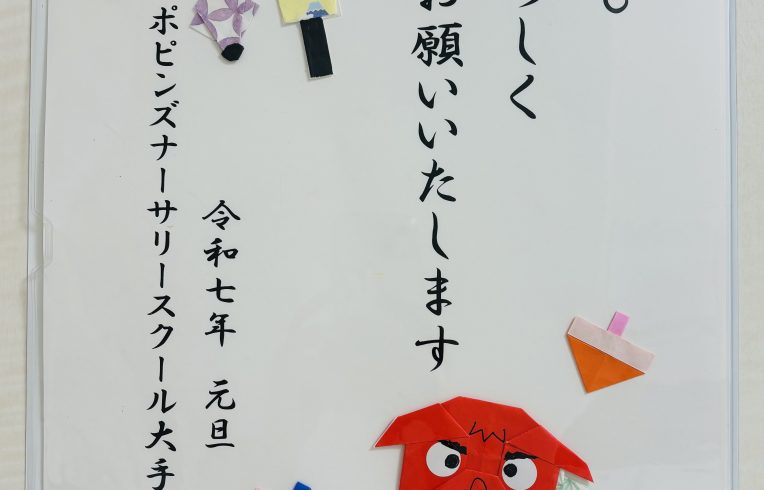 。
しく
お願いいたします
令和七年 元旦
ポピンズナーサリースクール大手